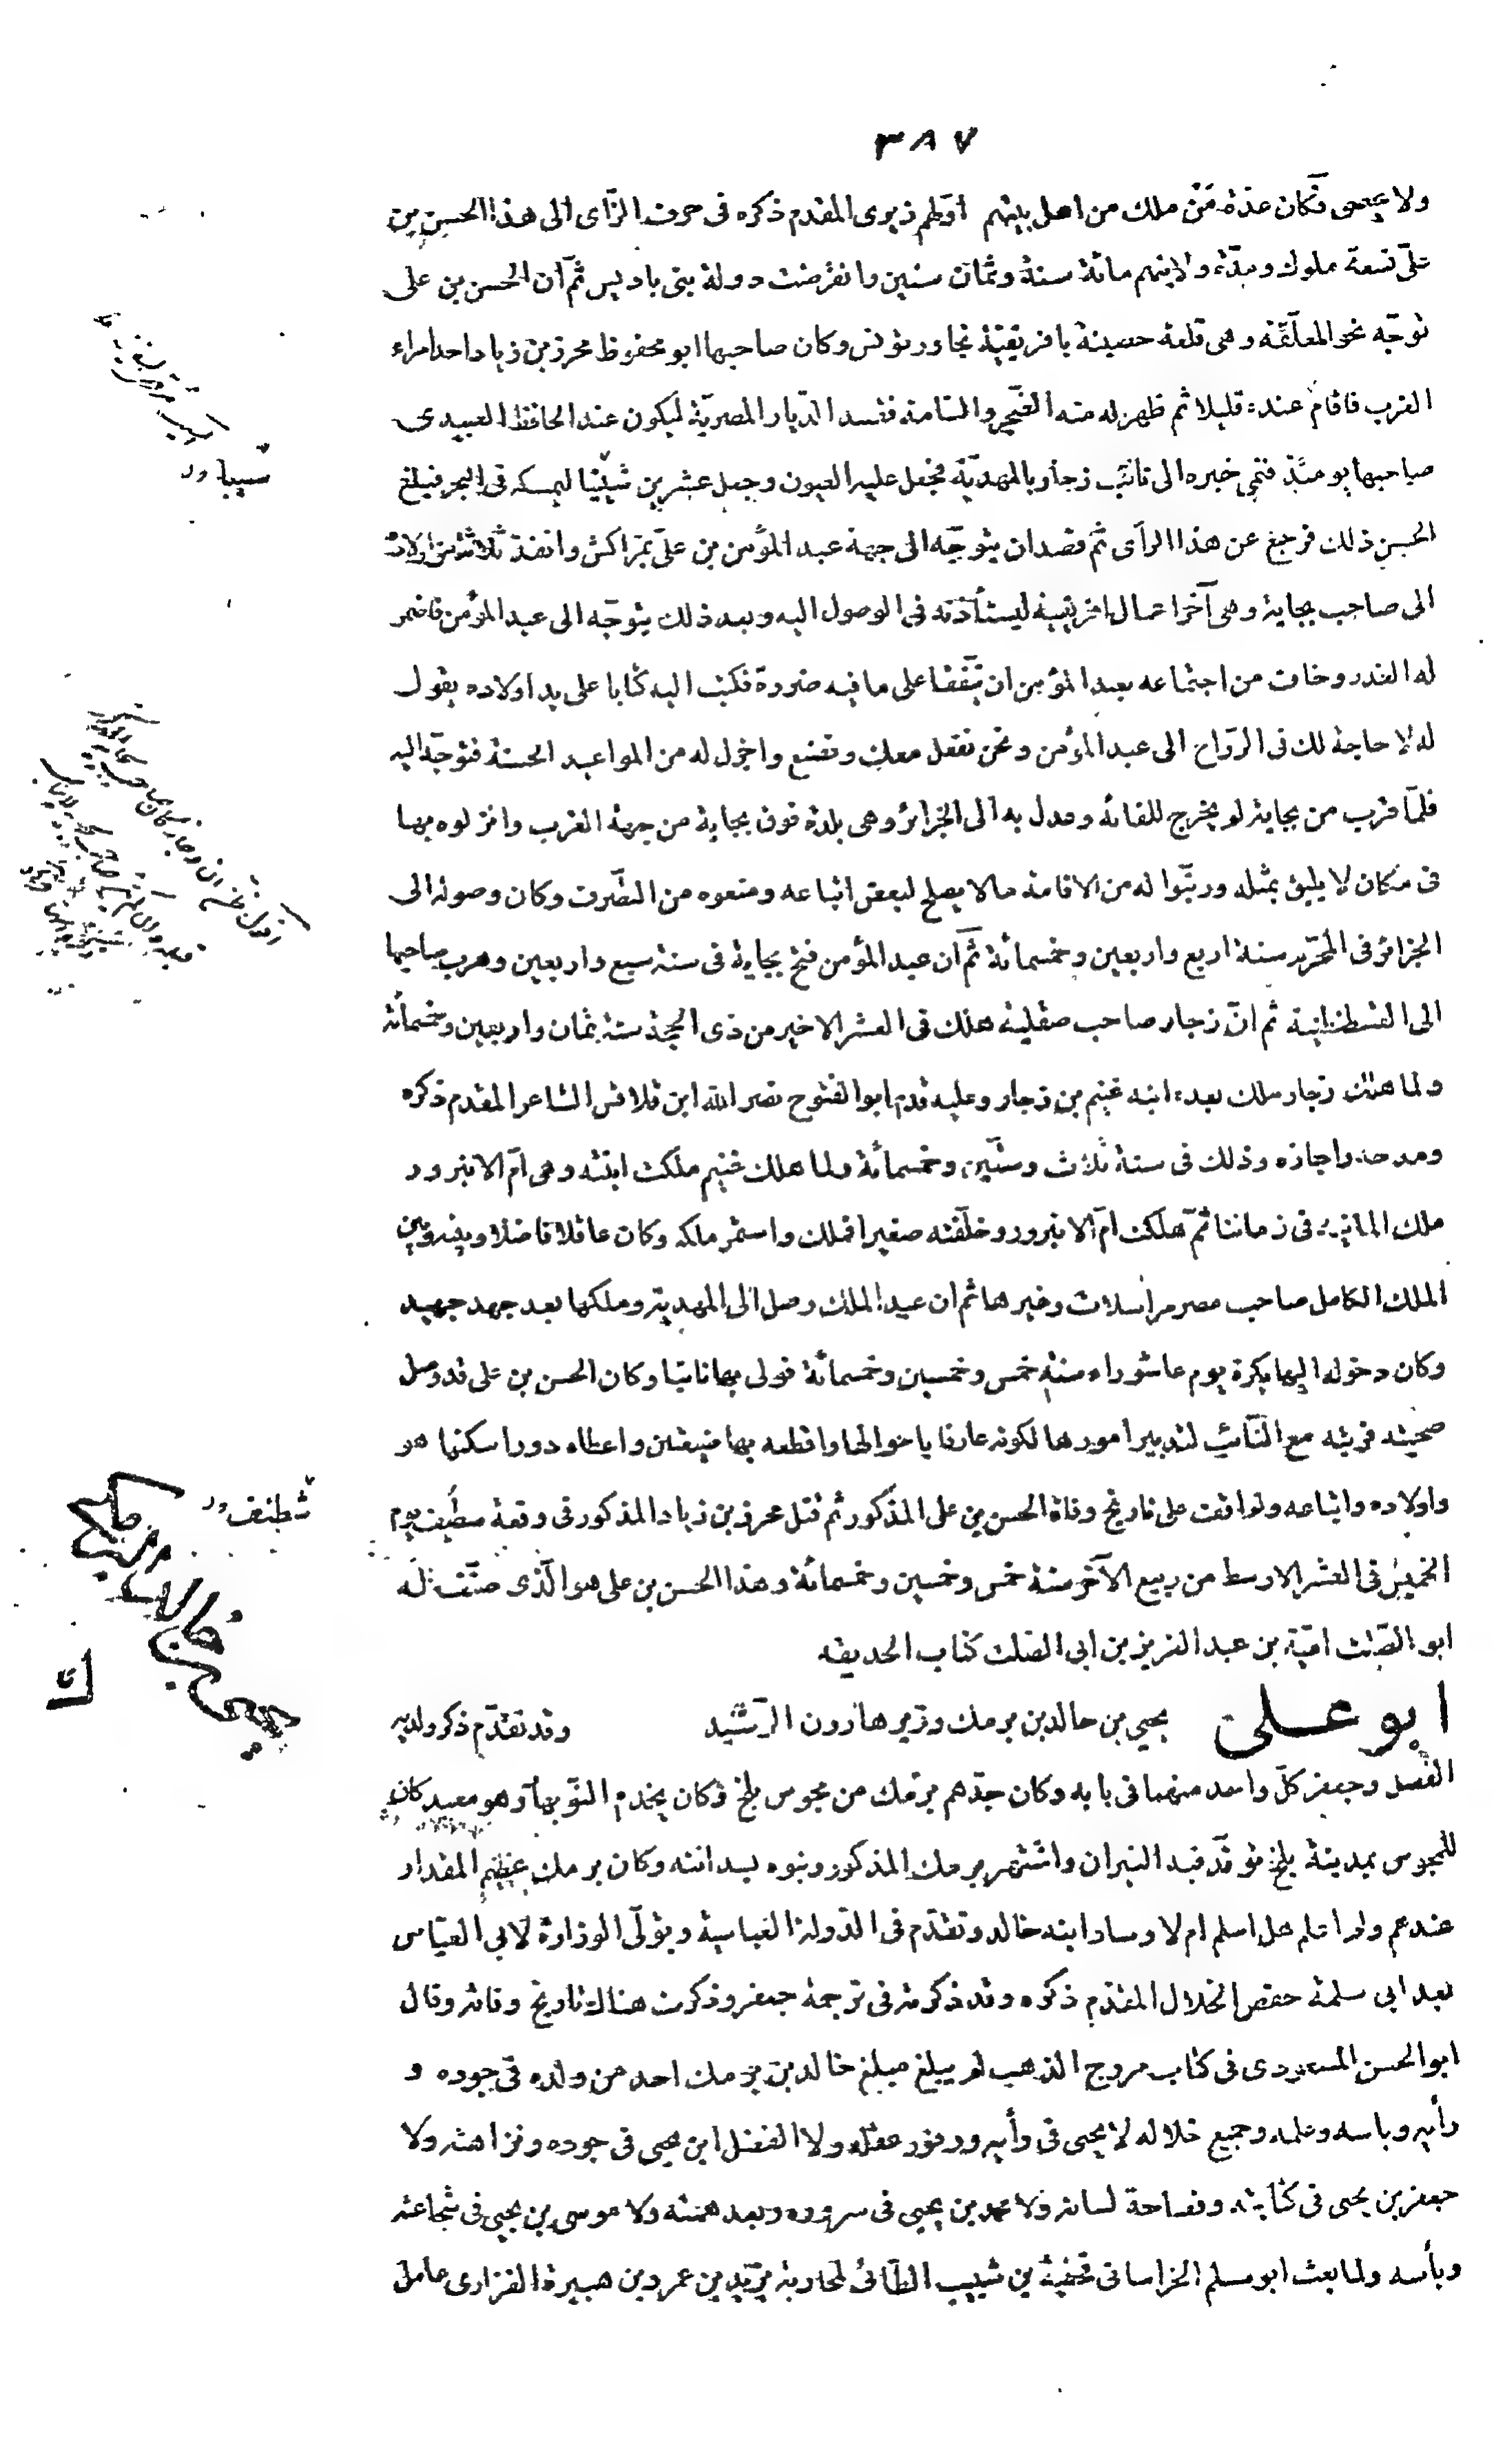 ٣٨٧
ولا يحصى فكان عدة من ملك من اهل بيتهم اولهم زيرى المقدم ذكره فى حرف الزاى الى هذا الحسن بن
على تسعة ملوك ومدة ولايتهم مائة سنة وثمان سنين وانقرضت دولة بنى باديس ثم ان الحسن بن على
توجه نحو المعلقة وهى قلعة حصينة بافريقية تجاور تونس وكان صاحبها ابو محفوظ محرز بن زياد احد امراء
العرب فاقام عنده قليلا ثم ظهر له منه الضجر والسامة فقصد الديار المصرية ليكون عند الحافظ العبيدى
صاحبها يومئذ فنمى خبره الى نائب زجار بالمهدية فجعل عليه العيون وجعل عشرين شينيا ليمسكه فى البحر فبلغ
الحسن ذلك فرجع عن هذا الرأى ثم قصد ان يتوجه الى جهة عبد المؤمن بن على بمراكش وانفذ ثلاثة من اولاده
الى صاحب بجاية وهى آخر اعمال افريقية ليستأذنه فى الوصول اليه وبعد ذلك يتوجه الى عبد المؤمن فاضمر
له الغدر وخاف من اجتماعه بعبد المؤمن ان يتفقا على ما فيه ضررة فكتب اليه كتابا على يد اولاده يقول
له لا حاجة لك فى الرواح الى عبد المؤمن ونحن نفعل معك ونصنع واجزل له من المواعيد الحسنة فتوجه اليه
فلما قرب من بجاية لم يخرج للقائه وعدل به الى الجزائر وهى بلدة فوق بجاية من جهة الغرب وانزلوه بها
فى مكان لا يليق بمثله ورتبوا له من الاقامة ما لا يصلح لبعض اتباعه ومنعوه من التصرف وكان وصوله الى
الجزائر فى المحرم سنة اربع واربعين وخمسمائة ثم ان عبد المؤمن فتح بجاية فى سنة سبع واربعين وهرب صاحبها
الى القسطنطينية ثم ان زجار صاحب صقلية هلك فى العشر الاخير من ذى الحجة سنة ثمان واربعين وخمسمائة
ولما هلك زجار ملك بعده ابنه غنيم بن زجار وعليه قدم ابو الفتوح نصر الله ابن قلاقس الشاعر المقدم ذكره
ومدحه واجازه وذلك فى سنة ثلاث وستين وخمسمائة ولما هلك غنيم ملكت ابنته وهى ام الانبرور
ملك المانيه فى زماننا ثم هلكت ام الانبرور وخلفته صغيرا فملك واستمر ملكه وكان عاقلا فاضلا وبينه وبين
الملك الكامل صاحب مصر مراسلات وغيرها ثم ان عبد الملك وصل الى المهدية وملكها بعد جهد جهيد
وكان دخوله اليها بكرة يوم عاشوراء سنة خمس وخمسين وخمسمائة فولى بها نائبا وكان الحسن بن على قد وصل
صحبته فرتبه مع النائب لتدبير امورها لكونه عارفا باحوالها واقطعه بها ضيعتين واعطاه دورا سكنها هو
واولاده واتباعه ولم اقف على تاريخ وفاة الحسن بن على المذكور ثم قتل محرز بن زياد المذكور فى وقعة سطيف يوم
الخميس فى العشر الاوسط من ربيع الآخر سنة خمس وخمسين وخمسمائة وهذا الحسن بن على هو الذى صنف له
ابو الصلت امية بن عبد العزيز بن ابى الصلت كتاب الحديقه
ابو على يحيى بن خالد بن برمك وزير هارون الرشيد وقد تقدم ذكر ولديه
الفضل وجعفر كل واحد منهما فى بابه وكان جدهم برمك من مجوس بلخ وكان يخدم النوبهار وهو معبد كان
للمجوس بمدينة بلخ توقد فيه النيران واشتهر برمك المذكور وبنوه بسدانته وكان برمك عظيم المقدار
عندهم ولم اعلم هل اسلم ام لا وساد ابنه خالد وتقدم فى الدولة العباسية وتولى الوزارة لابى العباس
بعد ابى سلمة حفص الخلال المقدم ذكره وقد ذكرته فى ترجمة جعفر وذكرت هناك تاريخ وفاته وقال
ابو الحسن المسعودى فى كتاب مروج الذهب لم يبلغ مبلغ خالد بن برمك احد من ولده فى جوده و
رأيه وباسه وعلمه وجميع خلاله لا يحيى فى رأيه ووفور عقله ولا الفضل ابن يحيى فى جوده ونزاهته ولا
جعفر بن يحيى فى كتابته وفصاحة لسانه ولا محمد بن يحيى فى سروره وبعد همته ولا موسى بن يحيى فى شجاعته
وبأسه ولما بعث ابو مسلم الخراسانى قحطبة بن شبيب الطائى لمحاربة يزيد بن عمر بن هبيرة الفزارى عامل
شطنف